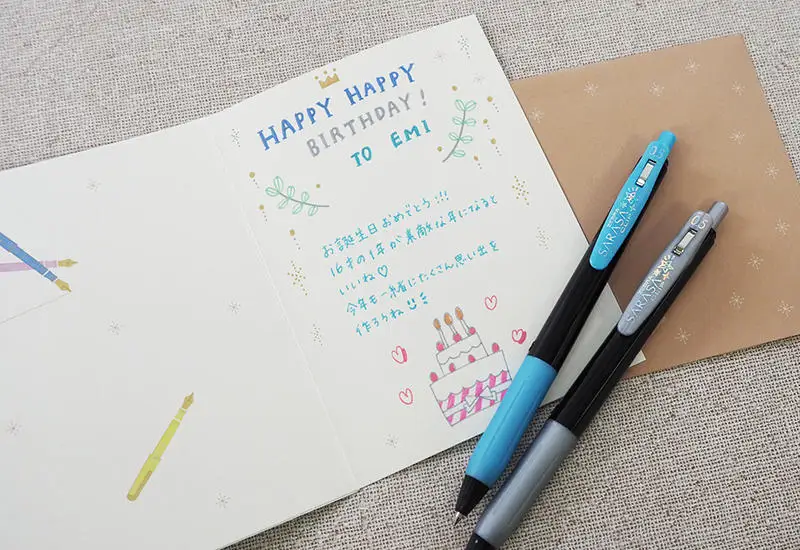 HAPPY HAPPY
BIRTHDAY!
TO EMI
お誕生日おめでとう!!!
16才の1年が素敵な年になると
いいね♡
今年も一緒にたくさん思い出を
作ろうね
SARASA
0.5
SARASA
0.5